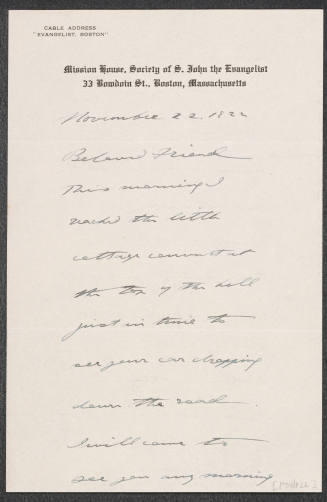 CABLE ADDRESS
"EVANGELIST, BOSTON"
Mission House, Society of S. John the Evangelist
33 Bowdoin St., Boston, Massachusetts
November 22. 1922
Beloved Friend
This morning I
reached the little
cottage convent at
the top of the hill
just in time to
see your car dropping
down the road.
I will come to
see you any morning